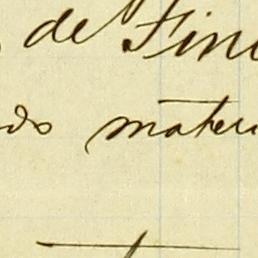 de Fin
ds mater